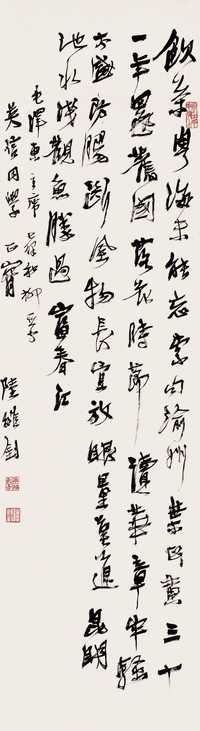 飲茶粵海未能忘索句渝州葉正黄三十
一年還舊國落花時節讀華章牢騷
太盛防腸斷風物長宜放眼量莫道昆明
池水淺觀魚勝過富春江
毛澤東主席和柳亞子
吳信同學正
陸維釗